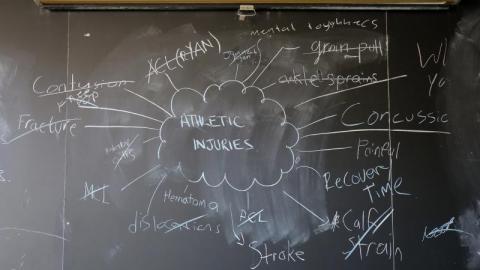 mental toughness
ACL (RYAN)
groin pull
ankle sprains
Contusion
Fracture
ATHLETIC
INJURIES
Concussio
Painful
Recovery
Time
ACL
Hematoma
dislocations
Stroke
Calf
Strain
Wi
Yo